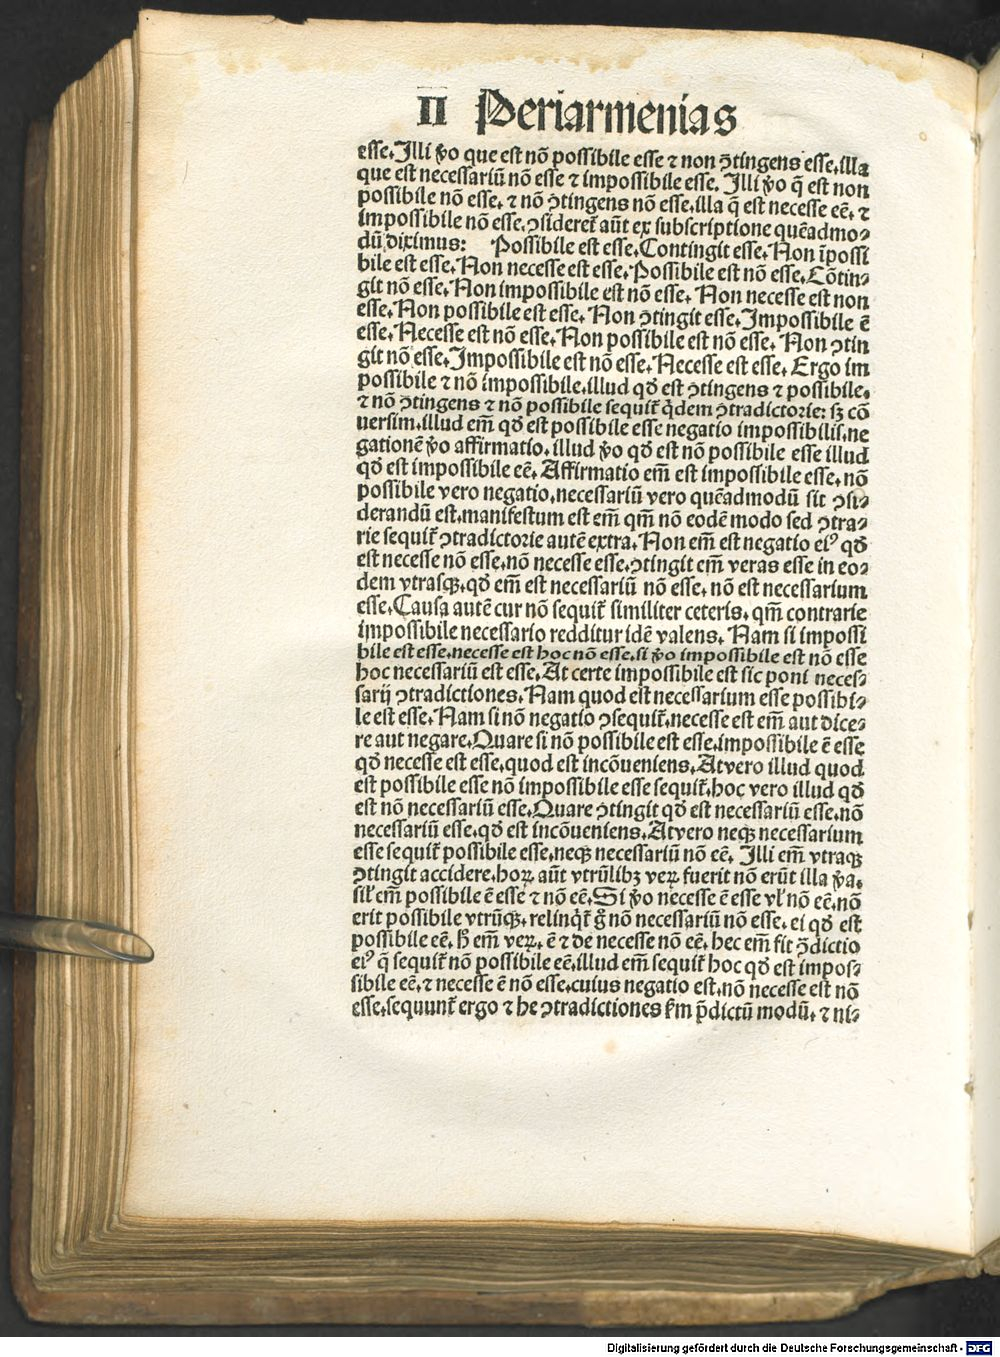 II Periarmenias
esse. Illi ṽo que est nõ possibile esse ⁊ non ꝯtingens esse, illa
que est necessariũ nõ esse ⁊ impossibile esse. Illi ṽo q̃ est non
possibile nõ esse, ⁊ nõ ꝯtingens nõ esse, illa q̃ est necesse eẽ, ⁊
impossibile nõ esse, ꝯsideret᷑ aũt ex subscriptione quẽadmo⸗
dũ diximus: Possibile est esse. Contingit esse. Non ĩpossi
bile est esse. Non necesse est esse. Possibile est nõ esse. Cõtin⸗
git nõ esse. Non impossibile est nõ esse. Non necesse est non
esse. Non possibile est esse. Non ꝯtingit esse. Impossibile ẽ
esse. Necesse est nõ esse. Non possibile est nõ esse. Non ꝯtin
git nõ esse. Impossibile est nõ esse. Necesse est esse. Ergo im
possibile ⁊ nõ impossibile, illud qđ est ꝯtingens ⁊ possibile,
⁊ nõ ꝯtingens ⁊ nõ possibile sequit᷑ q̇dem ꝯtradictorie: sꝫ cõ
uersim, illud em̃ qđ est possibile esse negatio impossibilis, ne
gationẽ ṽo affirmatio, illud ṽo qđ est nõ possibile esse illud
qđ est impossibile eẽ. Affirmatio em̃ est impossibile esse, nõ
possibile vero negatio, necessariũ vero quẽadmodũ sit ꝯsi⸗
derandũ est, manifestum est em̃ qm̃ nõ eodẽ modo sed ꝯtra⸗
rie sequit᷑ ꝯtradictorie autẽ extra. Non em̃ est negatio eiꝰ qđ
est necesse nõ esse, nõ necesse esse, ꝯtingit em̃ veras esse in eo⸗
dem vtrasqꝫ, qđ em̃ est necessariũ nõ esse, nõ est necessarium
esse. Causa autẽ cur nõ sequit᷑ similiter ceteris, qm̃ contrarie
impossibile necessario redditur idẽ valens. Nam si impossi
bile est esse, necesse est hoc nõ esse, si ṽo impossibile est nõ esse
hoc necessariũ est esse. At certe impossibile est sic poni neces⸗
sarij ꝯtradictiones. Nam quod est necessarium esse possibi⸗
le est esse. Nam si nõ negatio ꝯsequit᷑, necesse est em̃ aut dice⸗
re aut negare. Quare si nõ possibile est esse, impossibile ẽ esse
qđ necesse est esse, quod est incõueniens. Atvero illud quod
est possibile esse nõ impossibile esse sequit᷑, hoc vero illud qđ
est nõ necessariũ esse. Quare ꝯtingit qđ est necessariũ esse, nõ
necessariũ esse, qđ est incõueniens. Atvero neqꝫ necessarium
esse sequit᷑ possibile esse, neqꝫ necessariũ nõ eẽ. Illi em̃ vtraqꝫ
ꝯtingit accidere, hoꝝ aũt vtrũlibꝫ veꝝ fuerit nõ erũt illa ṽa,
sil̃ em̃ possibile ẽ esse ⁊ nõ eẽ. Si ṽo necesse ẽ esse vl̃ nõ eẽ, nõ
erit possibile vtrũqꝫ, relinq̇t᷑ g̃ nõ necessariũ nõ esse, ei qđ est
possibile eẽ, h̃ em̃ veꝝ, ẽ ⁊ de necesse nõ eẽ, hec em̃ fit ꝯ̃dictio
eiꝰ q̃ sequit᷑ nõ possibile eẽ, illud em̃ sequit᷑ hoc qđ est impos⸗
sibile eẽ, ⁊ necesse ẽ nõ esse, cuius negatio est, nõ necesse est nõ
esse, sequunt᷑ ergo ⁊ he ꝯtradictiones ẜm p̃dictũ modũ, ⁊ ni⸗
Digitalisierung gefördert durch die Deutsche Forschungsgemeinschaft - DFG